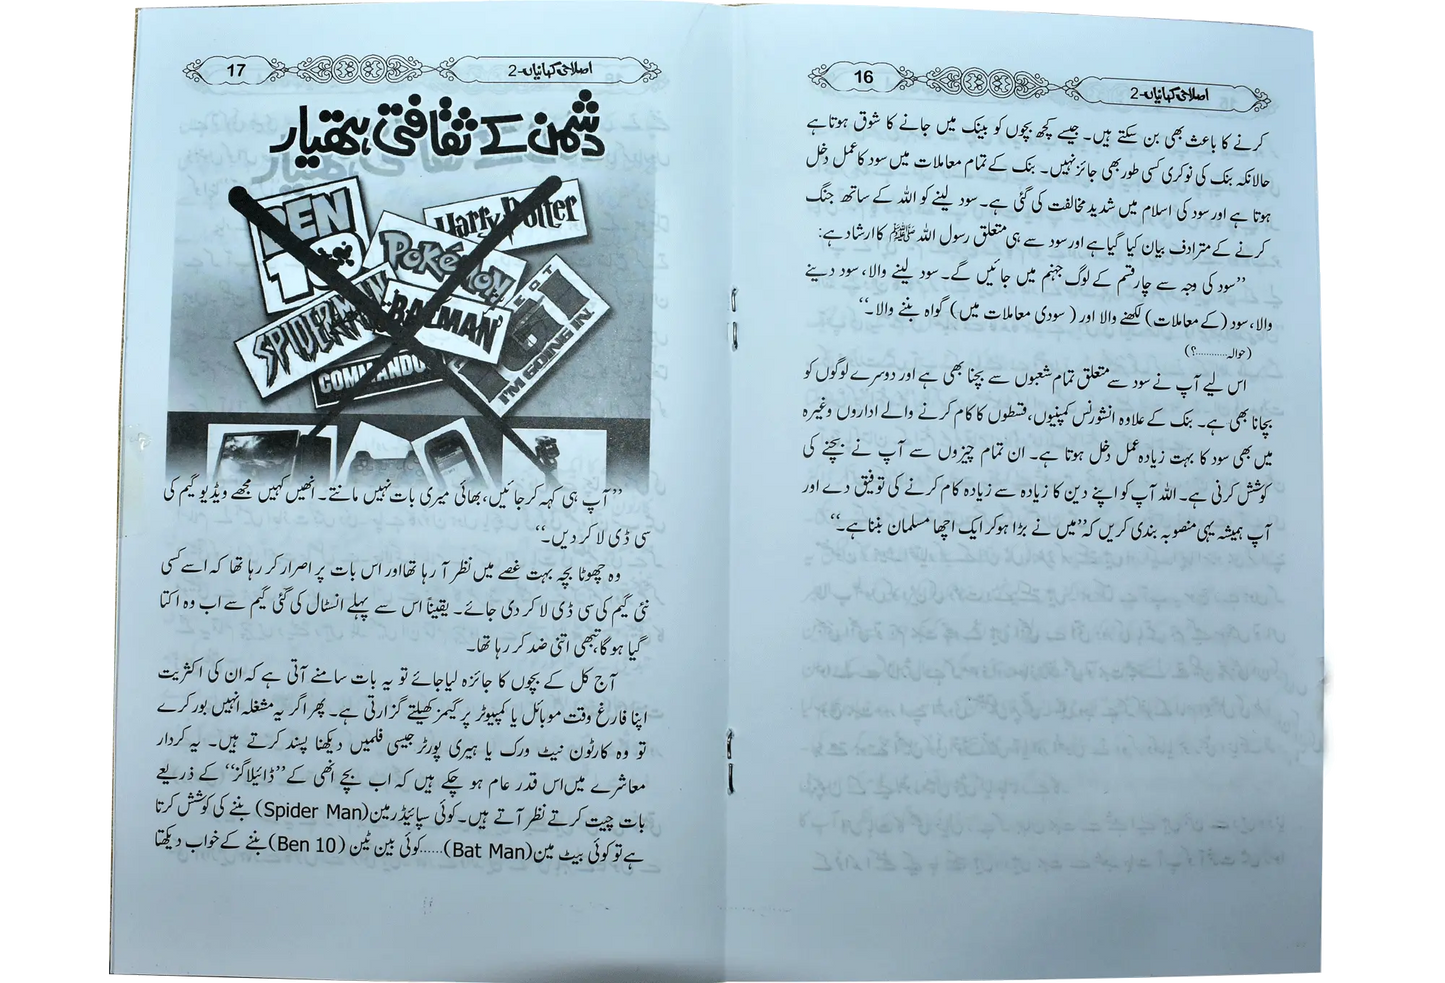 16
اصلاحی کہانیاں-2
کرنے کا باعث بھی بن سکتے ہیں۔ جیسے کچھ بچوں کو بینک میں جانے کا شوق ہوتا ہے
حالانکہ بنک کی نوکری کسی طور بھی جائز نہیں۔ بنک کے تمام معاملات میں سود کا عمل دخل
ہوتا ہے اور سود کی اسلام میں شدید مخالفت کی گئی ہے۔ سود لینے کو اللہ کے ساتھ جنگ
کرنے کے مترادف بیان کیا گیا ہے اور سود سے ہی متعلق رسول اللہ ﷺ کا ارشاد ہے:
’’سود کی وجہ سے چار قسم کے لوگ جہنم میں جائیں گے۔ سود لینے والا، سود دینے
والا، سود (کے معاملات) لکھنے والا اور (سودی معاملات میں) گواہ بننے والا۔‘‘
(حوالہ............؟)
اس لیے آپ نے سود سے متعلق تمام شعبوں سے بچنا بھی ہے اور دوسرے لوگوں کو
بچانا بھی ہے۔ بنک کے علاوہ انشورنس کمپنیوں، قسطوں کا کام کرنے والے اداروں وغیرہ
میں بھی سود کا بہت زیادہ عمل دخل ہوتا ہے۔ ان تمام چیزوں سے آپ نے بچنے کی
کوشش کرنی ہے۔ اللہ آپ کو اپنے دین کا زیادہ سے زیادہ کام کرنے کی توفیق دے اور
آپ ہمیشہ یہی منصوبہ بندی کریں کہ ’’میں نے بڑا ہو کر ایک اچھا مسلمان بننا ہے۔‘‘
17
اصلاحی کہانیاں-2
دشمن کے ثقافتی ہتھیار
BEN 10
Harry Potter
POKéMON
SPIDERMAN
BATMAN
COMMANDO
I'M GOING IN
’’آپ ہی کہہ کر جائیں، بھائی میری بات نہیں مانتے۔ انھیں کہیں مجھے ویڈیو گیم کی
سی ڈی لا کر دیں۔‘‘
وہ چھوٹا بچہ بہت غصے میں نظر آ رہا تھا اور اس بات پر اصرار کر رہا تھا کہ اسے کسی
نئی گیم کی سی ڈی لا کر دی جائے۔ یقیناً اس سے پہلے انسٹال کی گئی گیم سے اب وہ اکتا
گیا ہوگا، تبھی اتنی ضد کر رہا تھا۔
آج کل کے بچوں کا جائزہ لیا جائے تو یہ بات سامنے آتی ہے کہ ان کی اکثریت
اپنا فارغ وقت موبائل یا کمپیوٹر پر گیمز کھیلتے گزارتی ہے۔ پھر اگر یہ مشغلہ انہیں بور کرے
تو وہ کارٹون نیٹ ورک یا ہیری پورٹر جیسی فلمیں دیکھنا پسند کرتے ہیں۔ یہ کردار
معاشرے میں اس قدر عام ہو چکے ہیں کہ اب بچے انھی کے ’’ڈائیلاگز‘‘ کے ذریعے
بات چیت کرتے نظر آتے ہیں۔ کوئی سپائیڈرمین (Spider Man) بننے کی کوشش کرتا
ہے تو کوئی بیٹ مین (Bat Man)......کوئی بین ٹین (Ben 10) بننے کے خواب دیکھتا